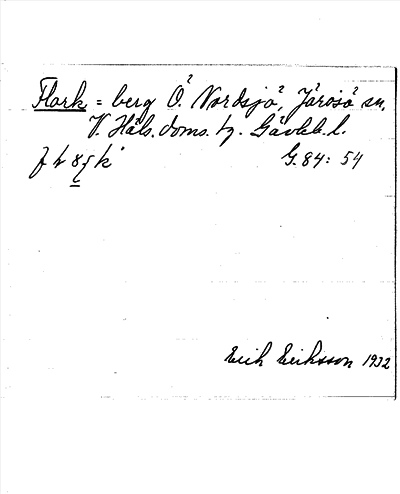 Flark = berg Ö. Nordsjö, Järvsö sn,
V. Häls. doms. tg. Gävleb. l.
G. 84: 54
Erik Eriksson 1932